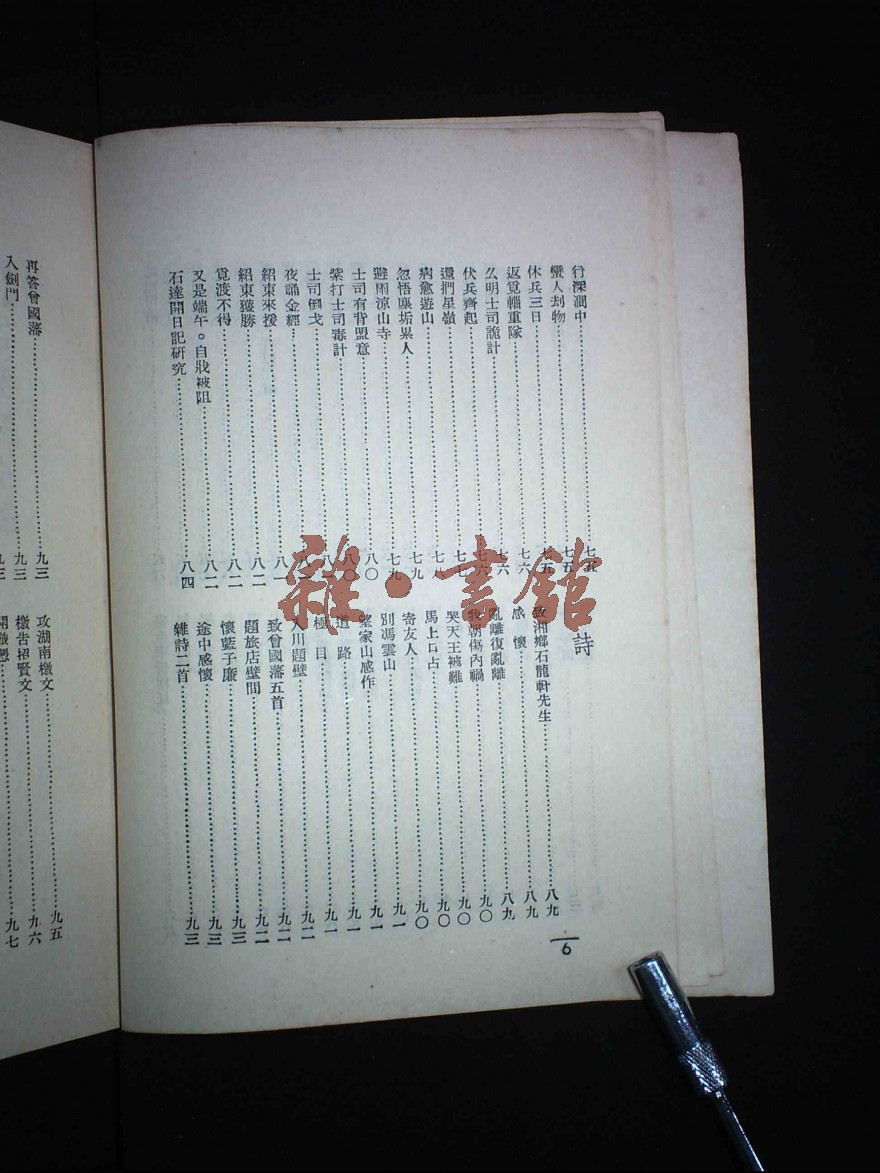 行深澗中……七五
蠻人刦物……七五
休兵三日……七五
返覓輜重隊……七六
么明土司詭計……七六
伏兵齊起……七六
還捫星嶺……七七
病愈遊山……七八
忽悟襄垢累人……七九
避雨涼山寺……七九
土司有背盟意……八〇
紫打土司毒計……八〇
土司倒戈
夜誦金經
紹東來援……八一
紹東獲勝……八二
覓渡不得……八二
又是端午。自戕被阻……八二
石達開日記硏究……八四
詩
致湘鄉石龍軒先生……八九
感懷……八九
亂離復亂離……八九
我朝傷內禍……九〇
哭天王被難……九〇
馬上口占……九〇
寄友人……九一
別馮雲山……九一
望家山感作……九一
道路……九一
極目……九一
入川題壁……九二
致曾國藩五首……九二
題旅店壁間……九二
懷藍子廉……九三
途中感懷……九三
雜詩二首……九三
6
再答曾國藩……九三
入劍門……九三
九三
攻湖南檄文……九五
檄告招賢文……九六
九七
雜·書館